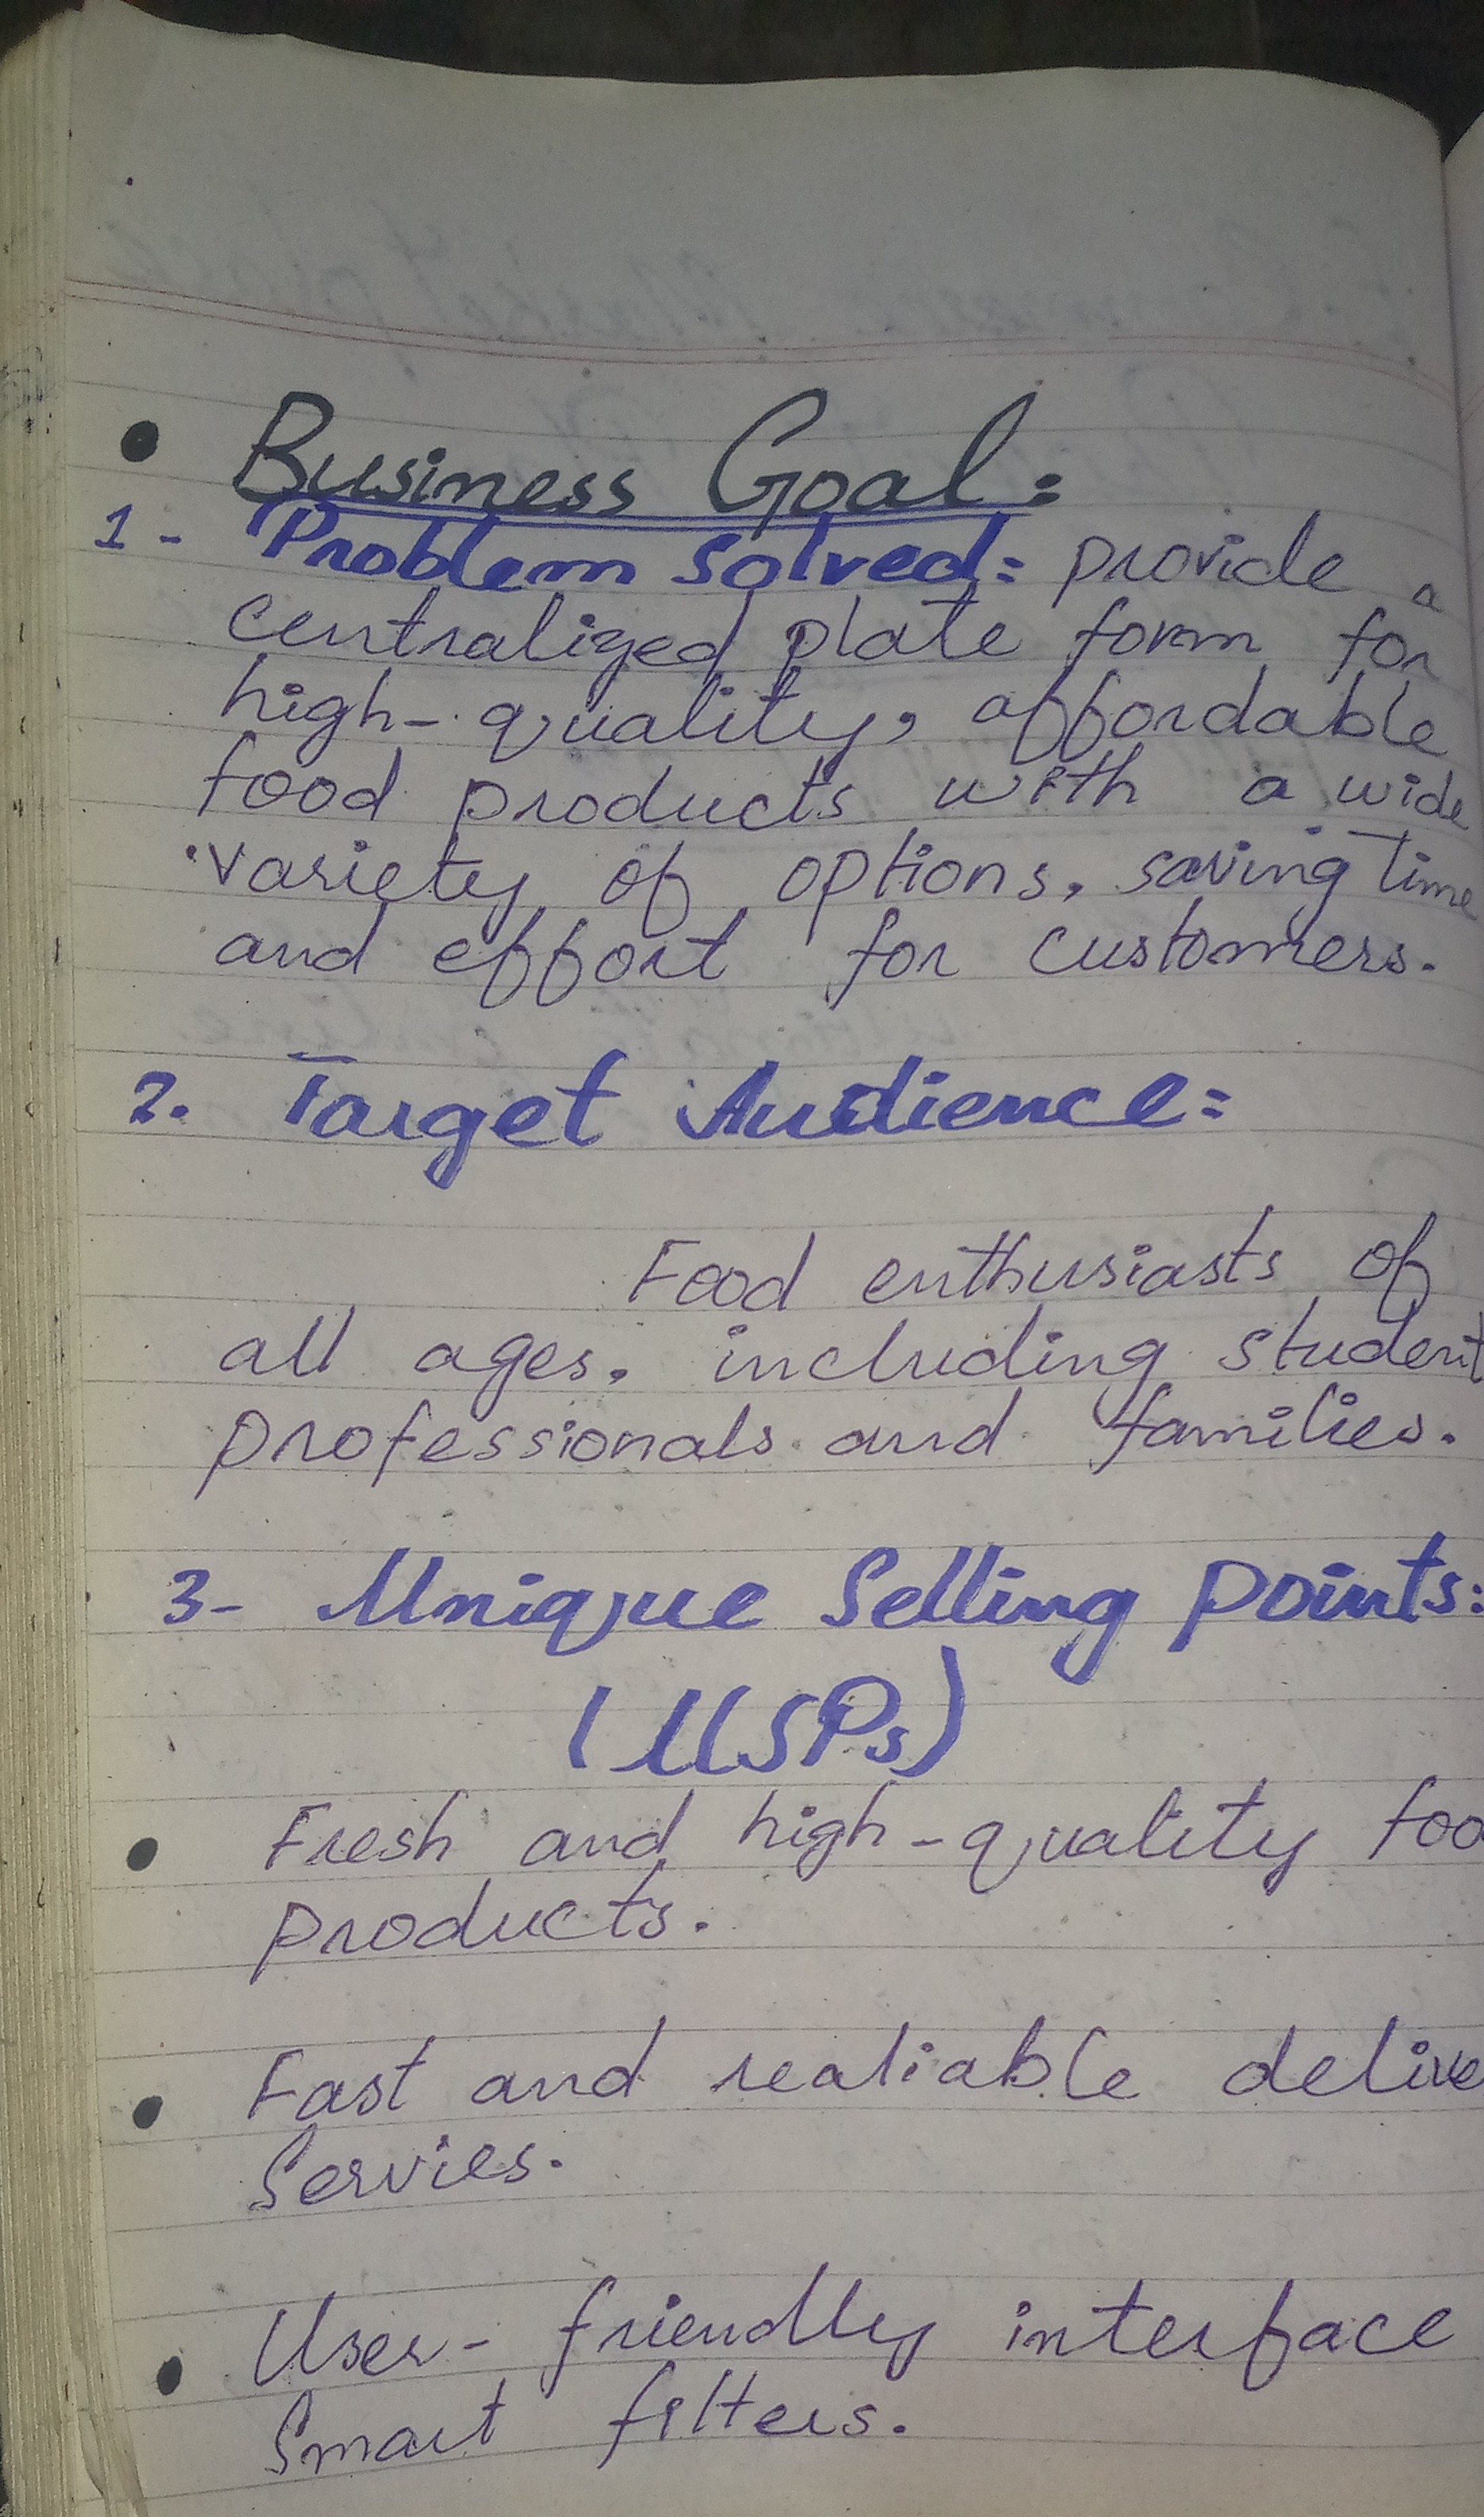 • Business Goal:
1- Problem Solved: provide a
centralized plate form for
high-quality, affordable
food products with a wide
variety of options, saving time
and effort for customers.
2. Target Audience:
Food enthusiasts of
all ages, including student
professionals and families.
3- Unique Selling points:
(USPs)
• Fresh and high-quality foo
products.
• Fast and realiable delive
Servies.
• User-friendly interface
Smart filters.